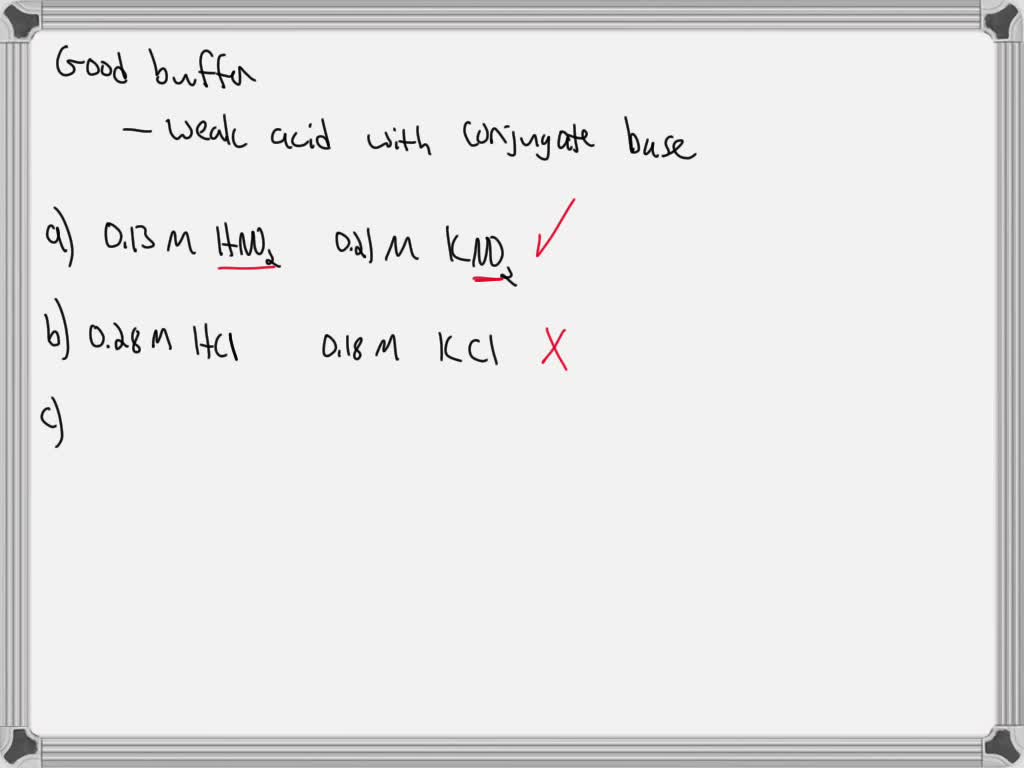 Good buffer
— weak acid with conjugate base
a) 0.13 M HNO₂ 0.21 M KNO₂ ✓
b) 0.28 M HCl 0.18 M KCl X
c)